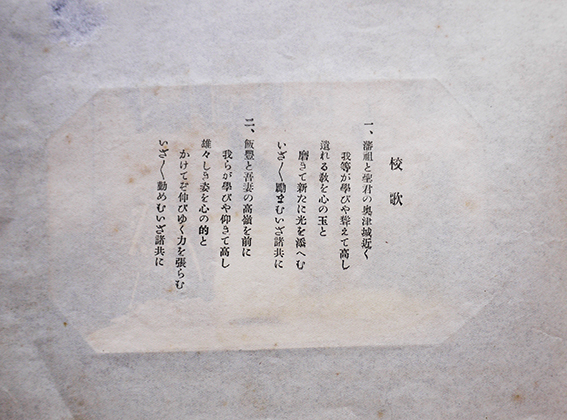 校歌
一、藩祖と聖君の奥津城近く
我等が學びや聳えて高し
遺れる敎を心の玉と
磨きて新たに光を添へむ
いざ〱勵まむいざ諸共に
二、飯豊と吾妻の高嶺を前に
我らが學びや仰きて高し
雄々しき姿を心の的と
かけてぞ伸びゆく力を張らむ
いざ〱勤めむいざ諸共に